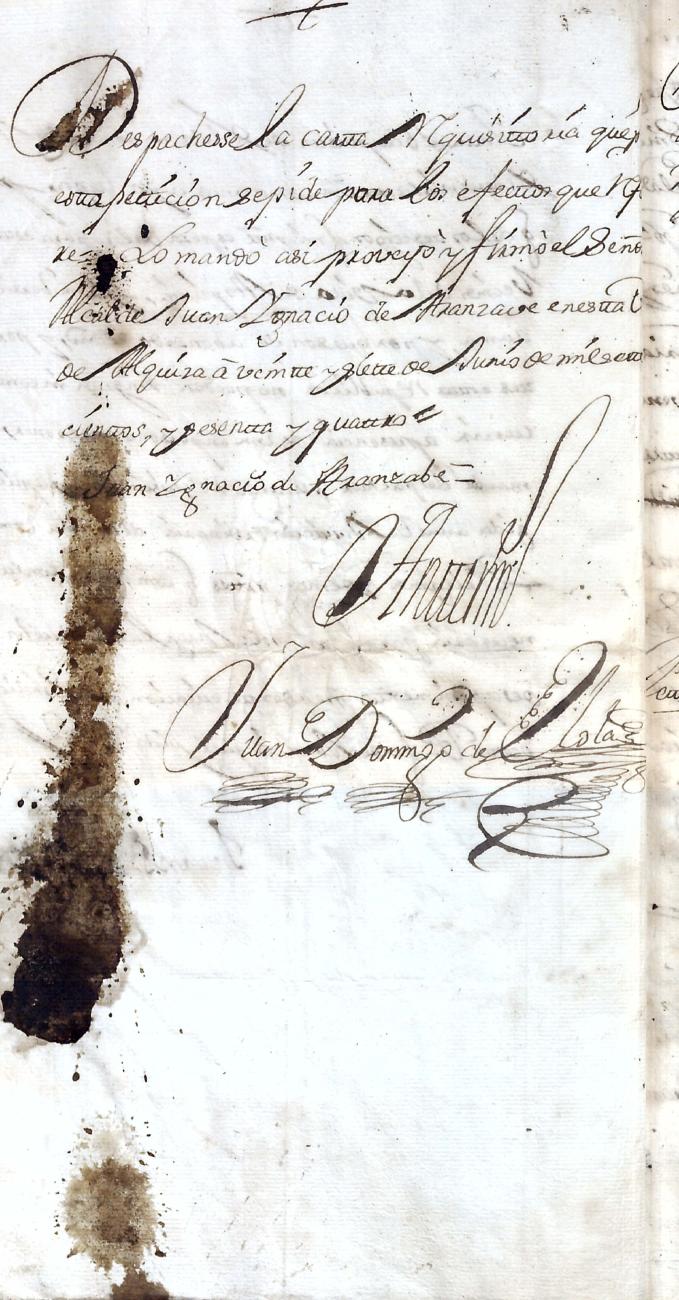 Despachesse la cartta Rquisittoria que p
estta petición se pide para los efecttos que Rf
re= Lo mandò assi proveyò y firmò el Señor
Alcalde Juan Ygnacio de Aranzave en estta V
de Alquiza à veintte y siette de Junio de mil sette
cienttos, y sesentta y quattro=
Juan Ygnacio de Aranzabe=
Antte mi
Juan Domingo de